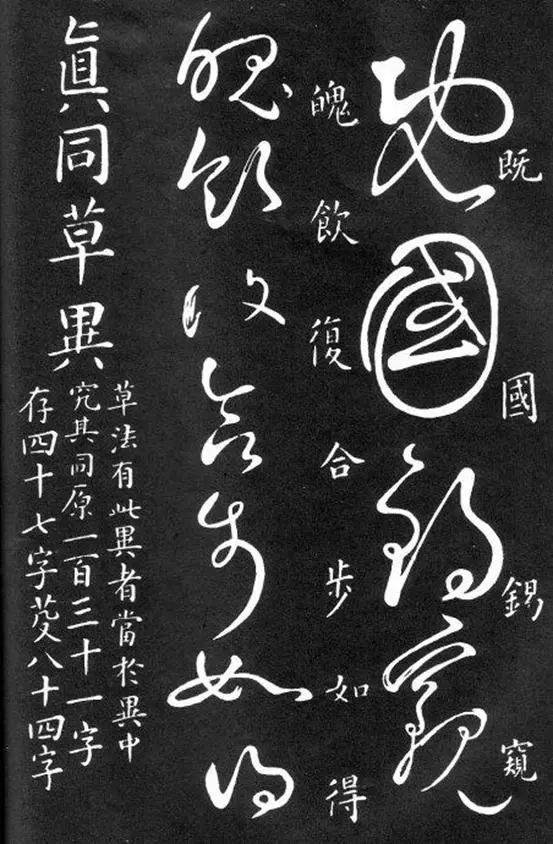 既國錫窺
既國錫窺
魄飲復合步如得
魄飲復合步如得
眞同草異
草法有此異者當於異中
究其同原一百三十一字
存四十七字芟八十四字